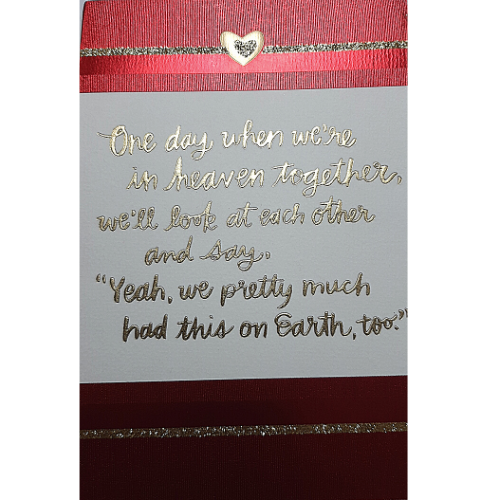 One day, when we're
in heaven together,
we'll look at each other
and say,
"Yeah, we pretty much
had this on Earth, too."